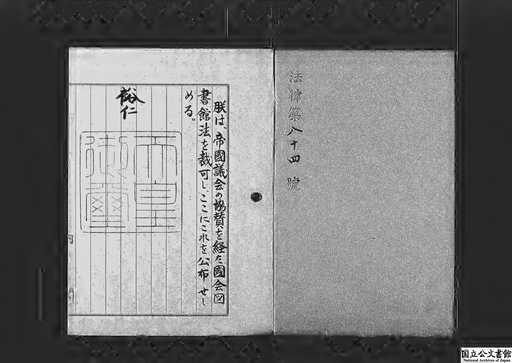 法律第八十四號
朕は、帝國議会の協賛を経た國会図
書館法を裁可し、ここにこれを公布せし
める。
裕仁
天皇
御璽
国立公文書館
National Archives of Japan